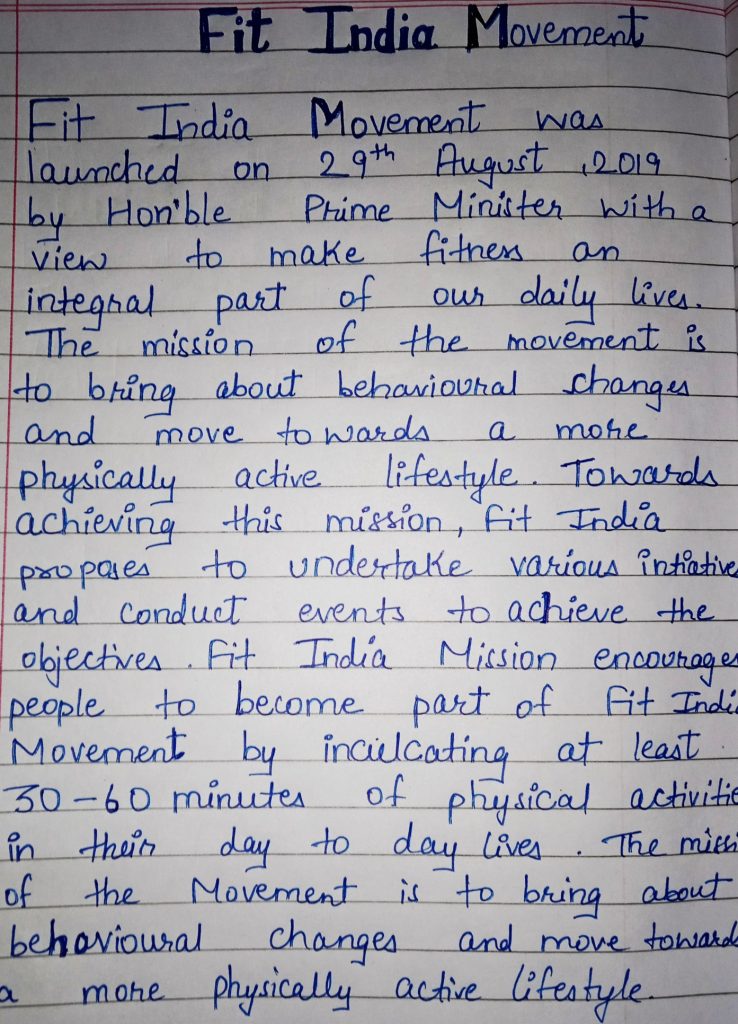 Fit India Movement
Fit India Movement was
launched on 29th August ,2019
by Hon'ble Prime Minister with a
view to make fitness an
integral part of our daily lives.
The mission of the movement is
to bring about behavioural changes
and move towards a more
physically active lifestyle. Towards
achieving this mission, Fit India
proposes to undertake various intiative
and conduct events to achieve the
objectives. Fit India Mission encourages
people to become part of Fit Indi
Movement by inculcating at least
30-60 minutes of physical activitie
in their day to day lives. The missi
of the Movement is to bring about
behavioural changes and move toward
a more physically active lifestyle.